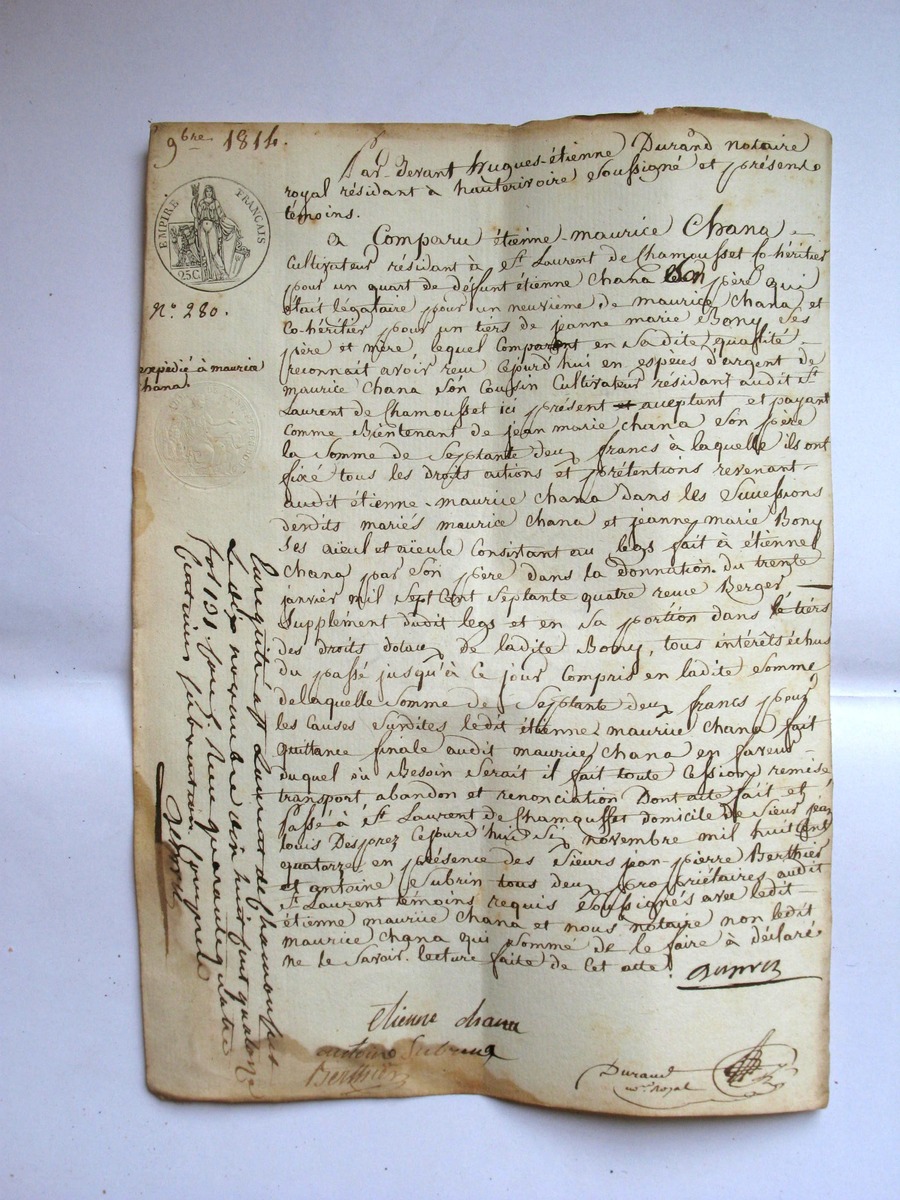 9bre 1814.
EMPIRE FRANÇAIS
25C.
N° 280.
expédié à maurice
chana.
Par-Devant hugues-étienne Durand notaire
royal résidant à hauterivoire soussigné et présents
témoins.
a Comparu étienne-maurice Chana
Cultivateur résidant à St Laurent de Chamousset Co-héritier
pour un quart de défunt étienne Chana Son père qui
était légataire pour un neuvième de maurice Chana et
Co-héritier pour un tiers de jeanne marie Bony Ses
père et mère lequel Comparant en Sa dite qualité
reconnait avoir reçu Cejourd'hui en espèces d'argent de
maurice Chana Son Cousin Cultivateur résidant audit St
Laurent de Chamousset ici présent et aceptant et payant
Comme Bientenant de jean marie Chana Son père
la Somme de Septante deux francs à laquelle ils ont
fixé tous les droits actions et prétentions revenant
audit étienne-maurice Chana dans les Successions
desdits mariés maurice Chana et jeanne marie Bony
Ses aïeul et aïeule Consistant au legs fait à étienne
Chana par Son père dans la donnation du trente
janvier mil Sept Cent Septante quatre reçue Berger
Supplement dudit legs et en Sa portion dans le tiers
des droits dotaux de ladite Bony, tous intérêts échus
du passé jusqu'à Ce jour Compris en ladite Somme
de laquelle Somme de Septante deux francs pour
les Causes Surdites ledit étienne maurice Chana fait
quittance finale audit maurice Chana en faveur
duquel où Besoin Serait il fait toute Cession remise
transport, abandon et renonciation Dont acte fait et
passé à St Laurent de Chamousset domicile de Sieur jean
louis Desprez Cejourd'hui Six novembre mil huit Cent
quatorze, en présence des Sieurs jean-pierre Berthier
et antoine Subrin tous deux propriétaires audit
St Laurent témoins requis Soussignés avec ledit
étienne maurice Chana et nous notaire non ledit
maurice Chana qui Sommé de le faire à déclaré
ne le Savoir. lecture faite de Cet acte.
etienne chana
antoine Subrin
Berthier
Durand
nre royal
Enregistré à St Laurent de Chamousset
Le dix novembre mil huit cent quatorze
fos 131 Reçu quarante quatre
centimes subvention Comprise